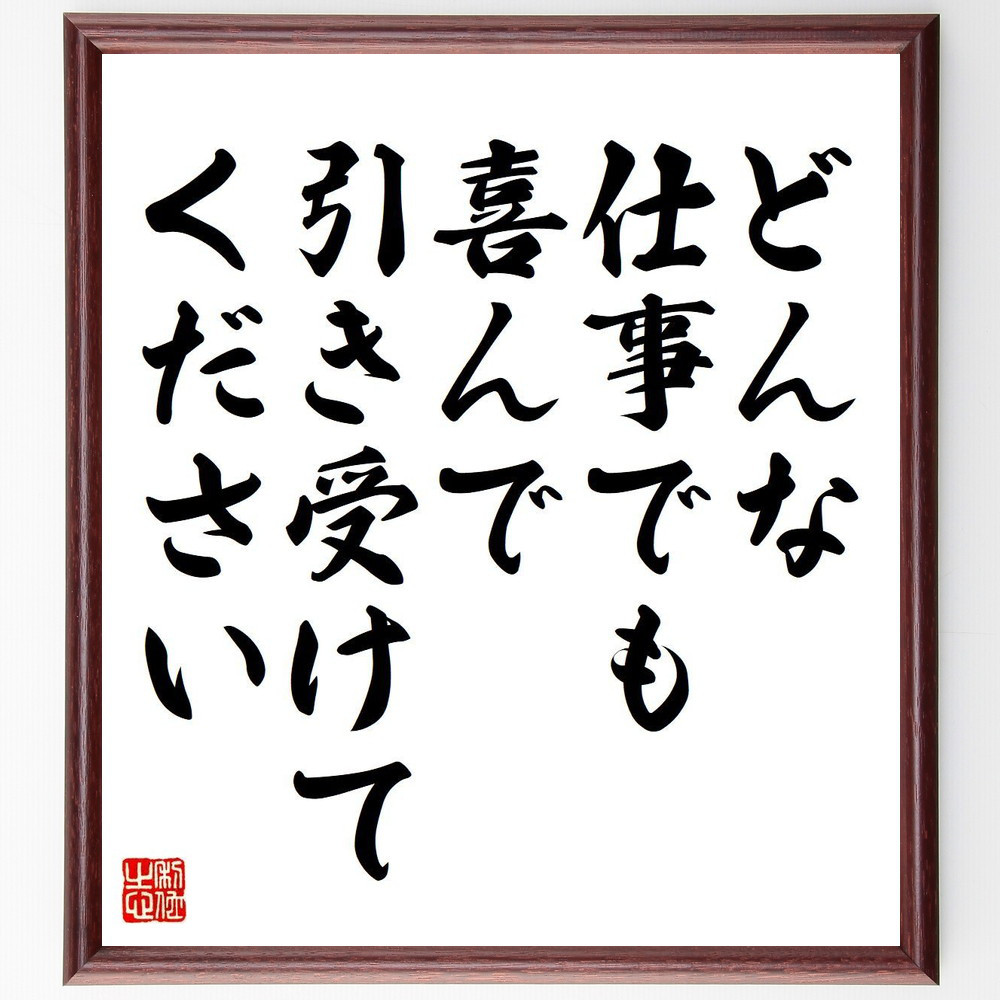 どんな
仕事でも
喜んで
引き受けて
ください